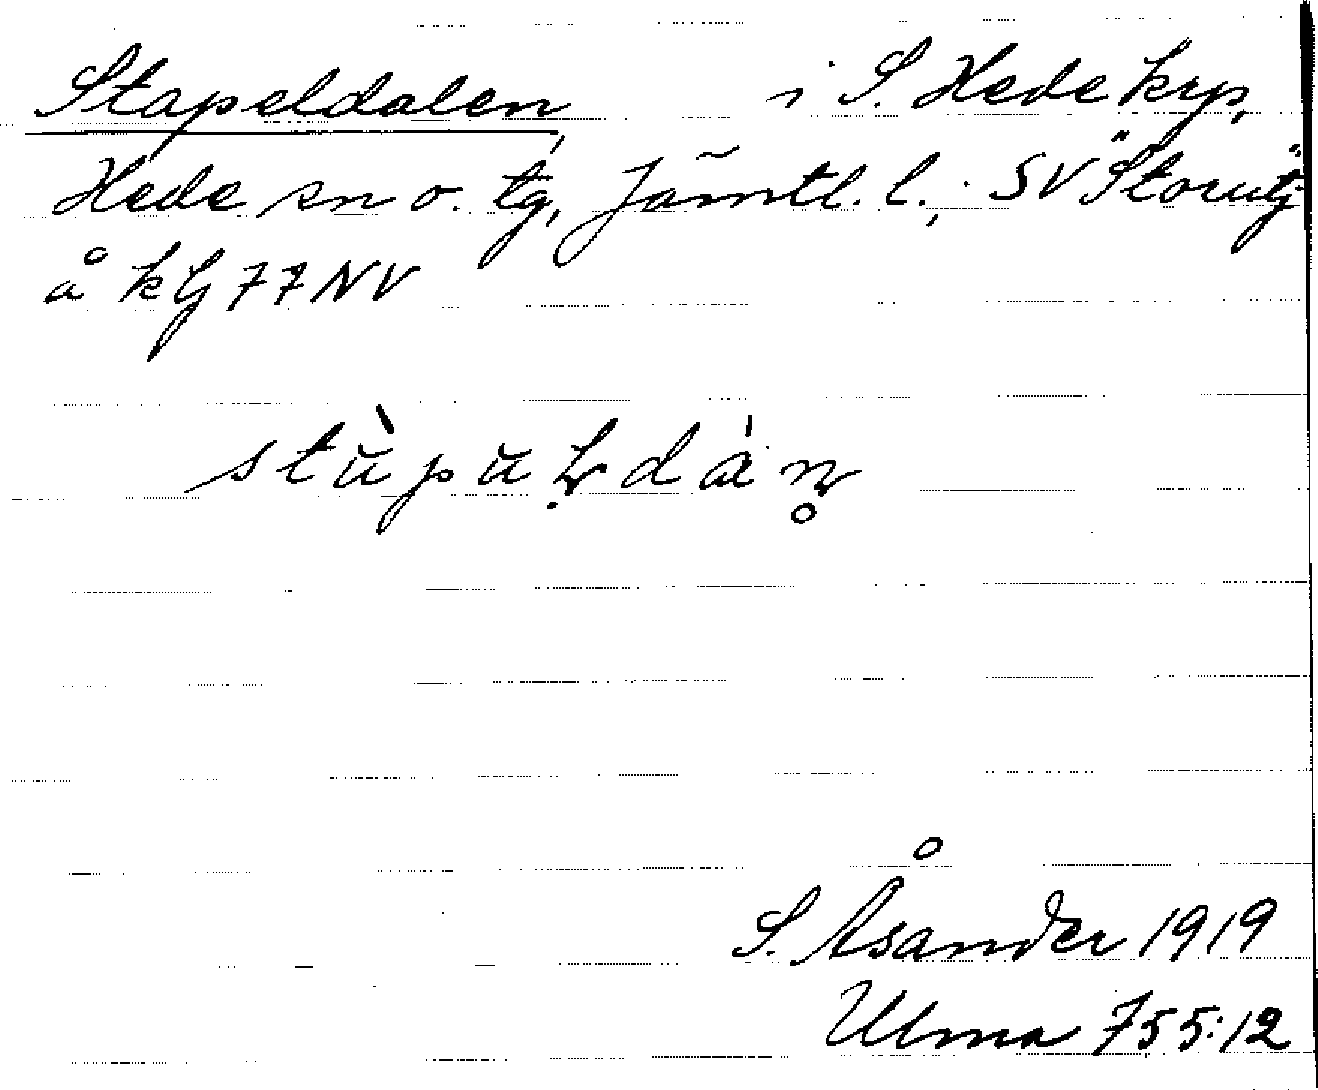 Stapeldalen i S. Hede krp,
Hede sn o. tg, Jämtl. l.; SV "Storutj"
å kG 77NV
S. Åsander 1919
Ulma 755:12